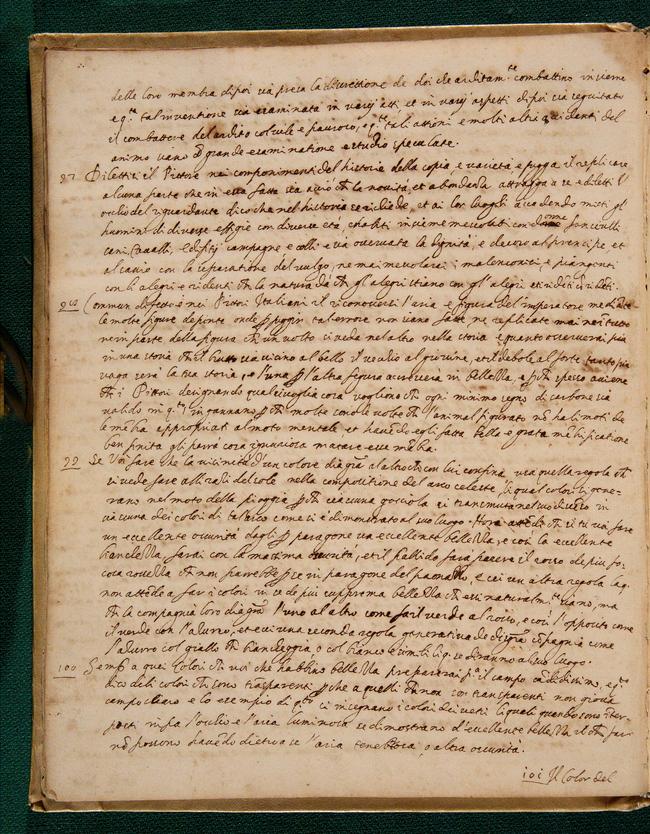 delle loro membra dipoi sia presa la discrettione de doi che arditam.te combattino insieme
e q.ta tal inventione sia esaminata in varij atti et in varij aspetti dipoi sia seguitato
il combattere del ardito col vile e pauroso, e q.te tali attioni e molti altri accidenti del
animo siano con grande esaminatione e studio speculate.
97 Dilettisi il Pittore nei componimenti del historie della copia, e varietà e fugga il replicare
alcuna parte che in essa fatta sia acciò che la novità, et abondanza attragga a se e diletti l'
occhio del riguardante dico che nel historia si richiede, et ai lor luoghi accadendo misti gl'
huomini di diverse effigie con diverse età, et habiti insieme mescolati con donne fanciulli
cani, cavalli, edifitij campagne e colli e sia osservata la dignità, e decoro al principe et
al savio con la separatione del vulgo, ne mai mescolarai i malenconici, e piangenti
con li alegri e ridenti che la natura dà che gl'alegri stiano con gl'alegri et i ridenti coi ridenti.
98 Commun difetto è nei Pittori Italiani il riconoscersi l'aria e figura del imperatore mediante
le molte figure depinte onde per fuggir tal errore non siano fatte, ne replicate mai nei tutto
ne in parte della figura che un volto si veda nel altro nella storia e quanto osserverai più
in una storia che il brutto sia vicino al bello il vecchio al giovine, et il debole al forte tanto più
vaga serà la tua storia, e l'una per l'altra figura accrescerà in bellezza, e perche spesso aviene
che i Pittori designando qualsivoglia cosa vogliono che ogni minimo segno di carbone sia
valido in q.to s'ingannano perche molte sono le volte che l'animal figurato non hà li moti de
le membra appropriati al moto mentale et havendo egli fatta bella e grata membrificatione
ben finita gli parrà cosa ingiuriosa mutare esse membra.
99 Se Voi fare che la vicinità d'un colore dia gratia al altro che con lui confina usa quella regola che
si vede fare alli razi del sole nella compositione del arco celeste, i quai colori si gene-
rano nel moto della pioggia perche ciascuna gocciola si transmuta nel suo discenso in
ciascuno dei colori di tal arco come si è dimostrato al suo luogo. Hora attendi che se tu voi fare
un eccellente oscurità dagli per paragone una eccellente bellezza, e così la eccellente
bianchezza, farai con la massima oscurità, et il pallido farà parere il rosso de piu fo-
cosa rossezza che non parrebbe per se in paragone del pavonazzo, e cci un altra regola la q.le
non attende a far i colori in se de piu supprema bellezza che essi naturalm.te siano, ma
che la compagnia loro dia gratia l'uno al altro come fa il verde al rosso, e così l'opposito come
il verde con l'azurro, et evvi una seconda regola generativa de disgratiata compagnia come
l'azurro col giallo che biancheggia, o col bianco e simili li q.li se diranno al suo luogo.
100 Sempre a quei Colori che voi che habbino bellezza preparerai p.a il campo candidissimo, e q.to
dico de li colori che sono trasparenti perche a quelli che non son transparenti non giova
campo chiaro e lo esempio di q.to ci insegnano i colori dei vetri li quali quando sono inter-
posti infra l'occhio e l'aria luminosa se dimostrano d'eccellente bellezza il che far
non possono havendo dietro se l'aria tenebrosa, o altra oscurità.
101 Il Color del